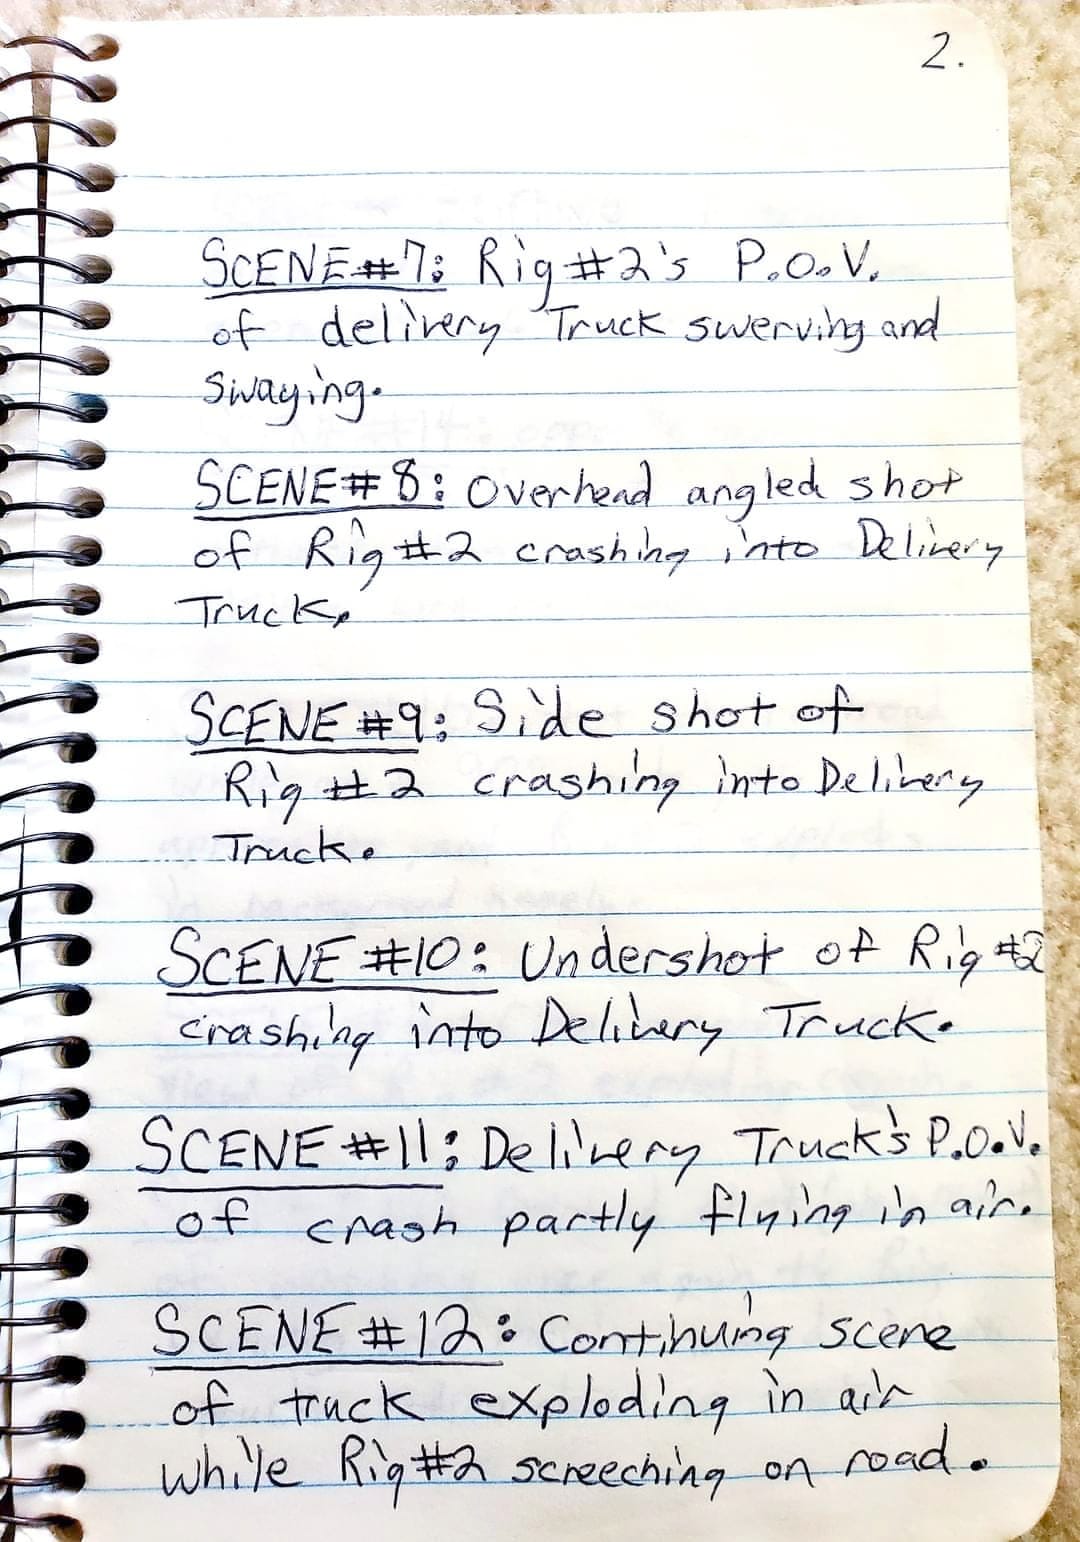 2.
SCENE #7: Rig #2's P.O.V.
of delivery Truck swerving and
swaying.
SCENE #8: Overhead angled shot
of Rig #2 crashing into Delivery
Truck.
SCENE #9: Side shot of
Rig #2 crashing into Delivery
Truck.
SCENE #10: Undershot of Rig #2
crashing into Delivery Truck.
SCENE #11: Delivery Truck's P.O.V.
of crash partly flying in air.
SCENE #12: Continuing scene
of truck exploding in air
while Rig #2 screeching on road.